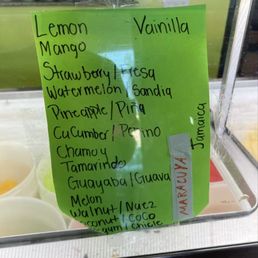 Lemon Vainilla
Mango
Strawberry/Fresa
Watermelon/Sandia
Pineapple/Piña
Cucumber/Pepino
Chamoy
Tamarindo
Guayaba/Guava
Melon
Walnut/Nuez
Coconut/Coco
gum/chicle
Jamaica
MARACUYA